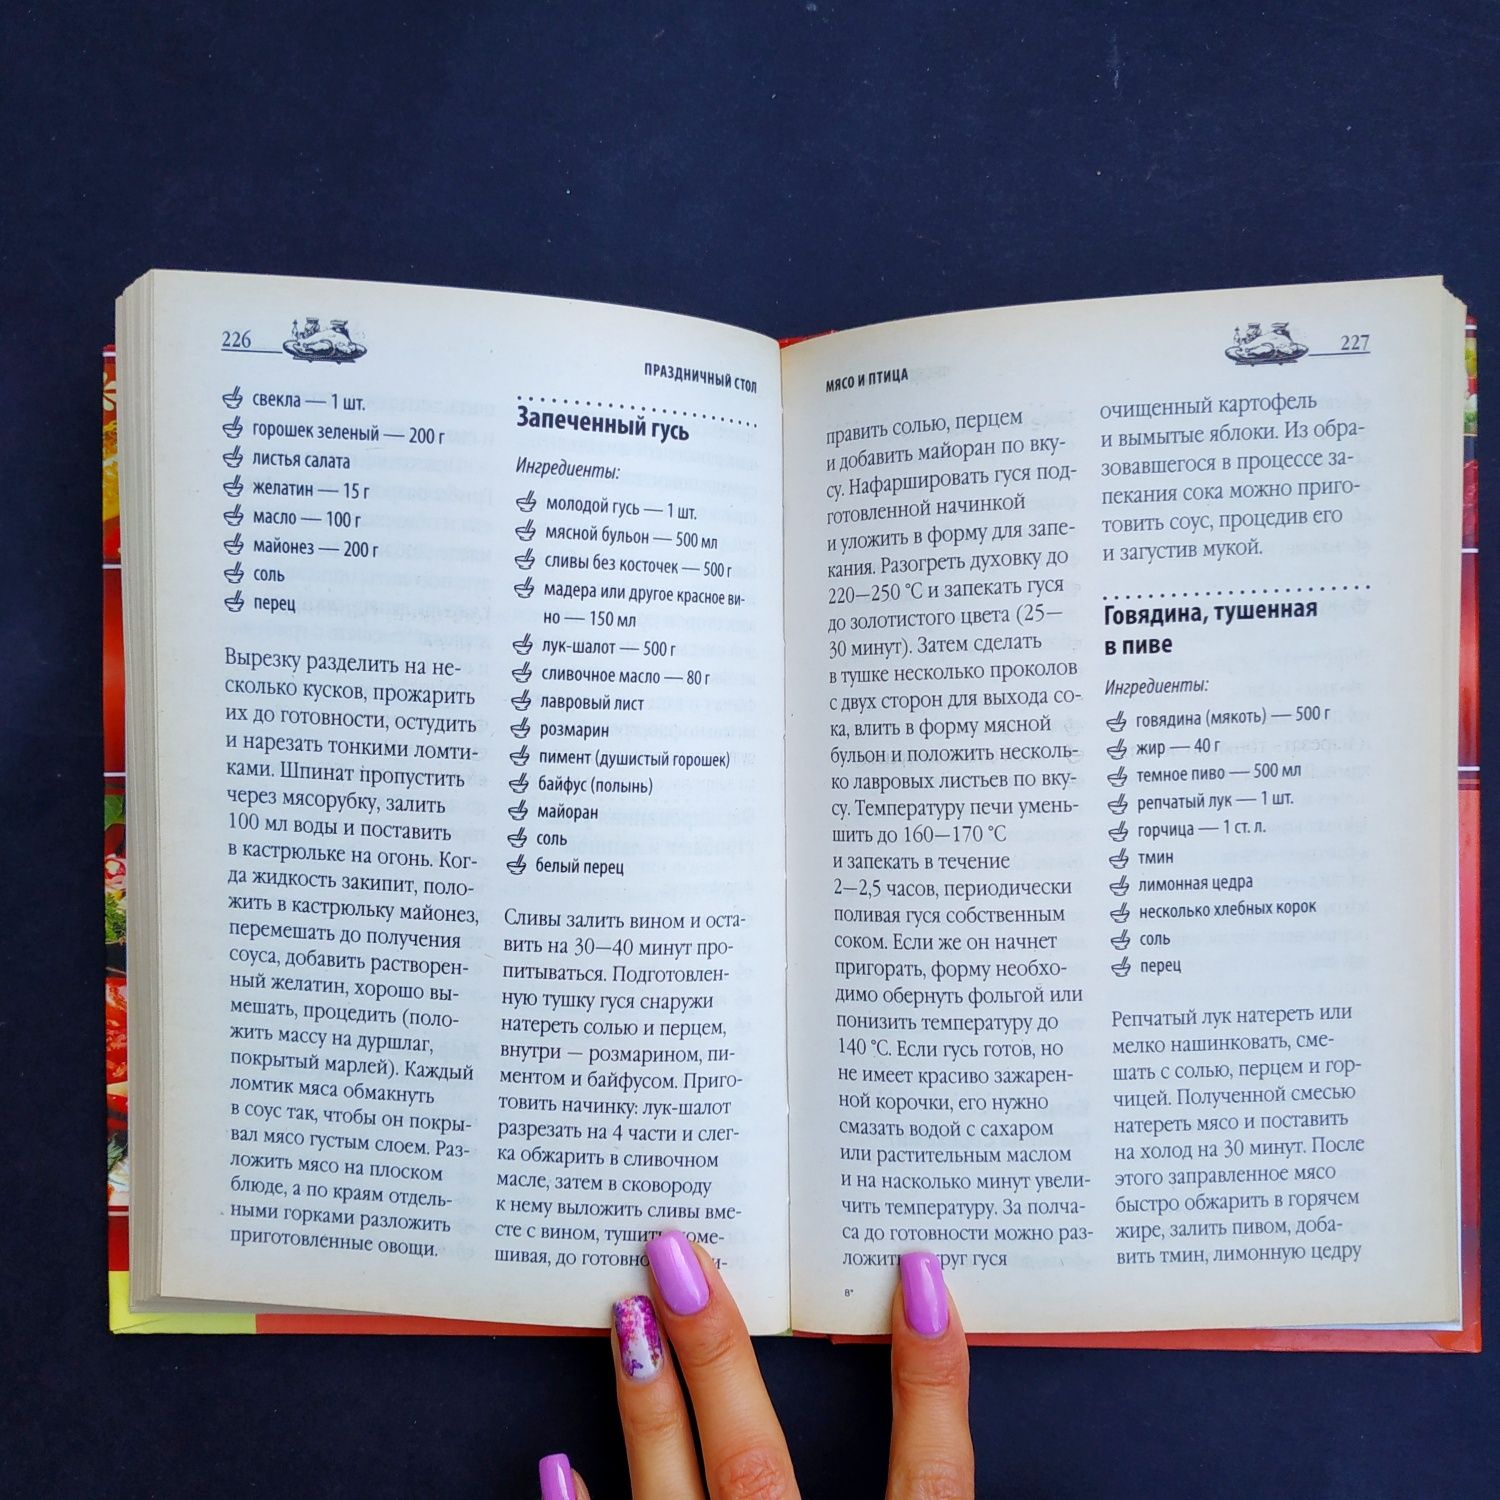 226
ПРАЗДНИЧНЫЙ СТОЛ
свекла — 1 шт.
горошек зеленый — 200 г
листья салата
желатин — 15 г
масло — 100 г
майонез — 200 г
соль
перец
Вырезку разделить на не-
сколько кусков, прожарить
их до готовности, остудить
и нарезать тонкими ломти-
ками. Шпинат пропустить
через мясорубку, залить
100 мл воды и поставить
в кастрюльке на огонь. Ког-
да жидкость закипит, поло-
жить в кастрюльку майонез,
перемешать до получения
соуса, добавить растворен-
ный желатин, хорошо вы-
мешать, процедить (поло-
жить массу на дуршлаг,
покрытый марлей). Каждый
ломтик мяса обмакнуть
в соус так, чтобы он покры-
вал мясо густым слоем. Раз-
ложить мясо на плоском
блюде, а по краям отдель-
ными горками разложить
приготовленные овощи.
Запеченный гусь
Ингредиенты:
молодой гусь — 1 шт.
мясной бульон — 500 мл
сливы без косточек — 500 г
мадера или другое красное ви-
но — 150 мл
лук-шалот — 500 г
сливочное масло — 80 г
лавровый лист
розмарин
пимент (душистый горошек)
байфус (полынь)
майоран
соль
белый перец
Сливы залить вином и оста-
вить на 30—40 минут про-
питываться. Подготовлен-
ную тушку гуся снаружи
натереть солью и перцем,
внутри — розмарином, пи-
ментом и байфусом. Приго-
товить начинку: лук-шалот
разрезать на 4 части и слег-
ка обжарить в сливочном
масле, затем в сковороду
к нему выложить сливы вме-
сте с вином, тушить
шивая, до
МЯСО И ПТИЦА
227
править солью, перцем
и добавить майоран по вку-
су. Нафаршировать гуся под-
готовленной начинкой
и уложить в форму для запе-
кания. Разогреть духовку до
220—250 °С и запекать гуся
до золотистого цвета (25—
30 минут). Затем сделать
в тушке несколько проколов
с двух сторон для выхода со-
ка, влить в форму мясной
бульон и положить несколь-
ко лавровых листьев по вку-
су. Температуру печи умень-
шить до 160—170 °С
и запекать в течение
2—2,5 часов, периодически
поливая гуся собственным
соком. Если же он начнет
пригорать, форму необхо-
димо обернуть фольгой или
понизить температуру до
140 °С. Если гусь готов, но
не имеет красиво зажарен-
ной корочки, его нужно
смазать водой с сахаром
или растительным маслом
и на насколько минут увели-
чить температуру. За полча-
са до готовности можно раз-
ложить гуся
8*
очищенный картофель
и вымытые яблоки. Из обра-
зовавшегося в процессе за-
пекания сока можно приго-
товить соус, процедив его
и загустив мукой.
Говядина, тушенная
в пиве
Ингредиенты:
говядина (мякоть) — 500 г
жир — 40 г
темное пиво — 500 мл
репчатый лук — 1 шт.
горчица — 1 ст. л.
тмин
лимонная цедра
несколько хлебных корок
соль
перец
Репчатый лук натереть или
мелко нашинковать, сме-
шать с солью, перцем и гор-
чицей. Полученной смесью
натереть мясо и поставить
на холод на 30 минут. После
этого заправленное мясо
быстро обжарить в горячем
жире, залить пивом, доба-
вить тмин, лимонную цедру